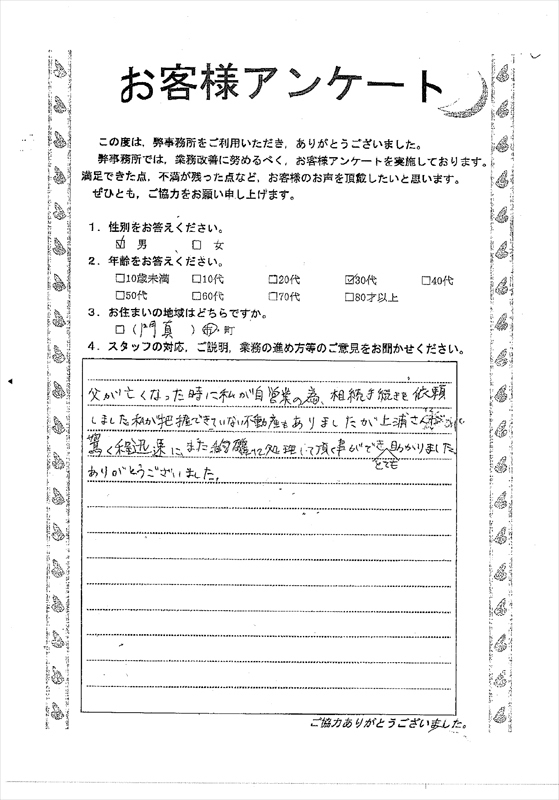 お客様アンケート
この度は，弊事務所をご利用いただき，ありがとうございました。
弊事務所では，業務改善に努めるべく，お客様アンケートを実施しております。
満足できた点，不満が残った点など，お客様のお声を頂戴したいと思います。
ぜひとも，ご協力をお願い申し上げます。
1．性別をお答えください。
☑ 男 □ 女
2．年齢をお答えください。
□10歳未満 □10代 □20代 ☑30代 □40代
□50代 □60代 □70代 □80才以上
3．お住まいの地域はどちらですか。
□（門真）市・町
4．スタッフの対応，ご説明，業務の進め方等のご意見をお聞かせください。
父が亡くなった時に私が自営業の為、相続手続きを依頼
しました私が把握できていない不動産もありましたが上浦さん
驚く程迅速に、また綺麗に処理して頂く事ができとても助かりました。
ありがとうございました。
ご協力ありがとうございました。